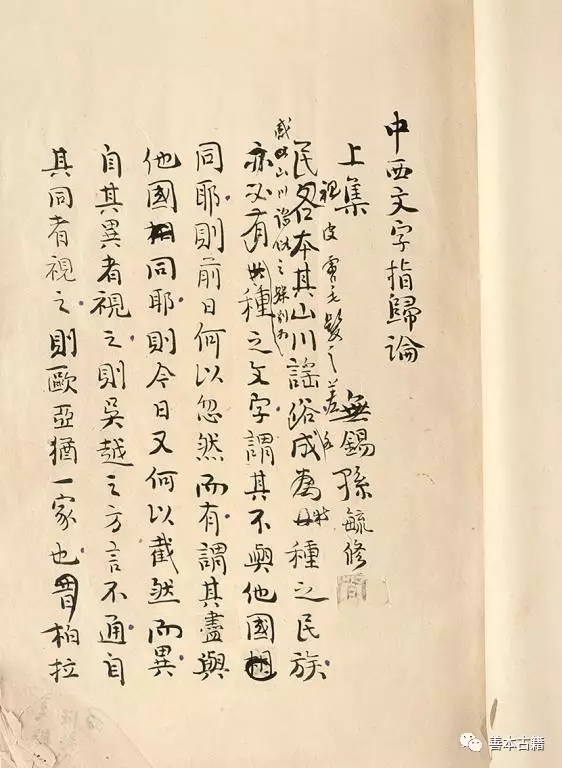 中西文字指歸論
上集 無錫孫毓修
民各本其山川謠俗成為特種之民族
感明山川謠俗之殊別而
亦必有世種之文字謂其不與他國
同耶則前日何以忽然而有謂其盡與
他國同耶則今日又何以截然而異
自其異者視之則吳越之方言不通自
其同者視之則歐亞猶一家也昔柏拉
善本古籍